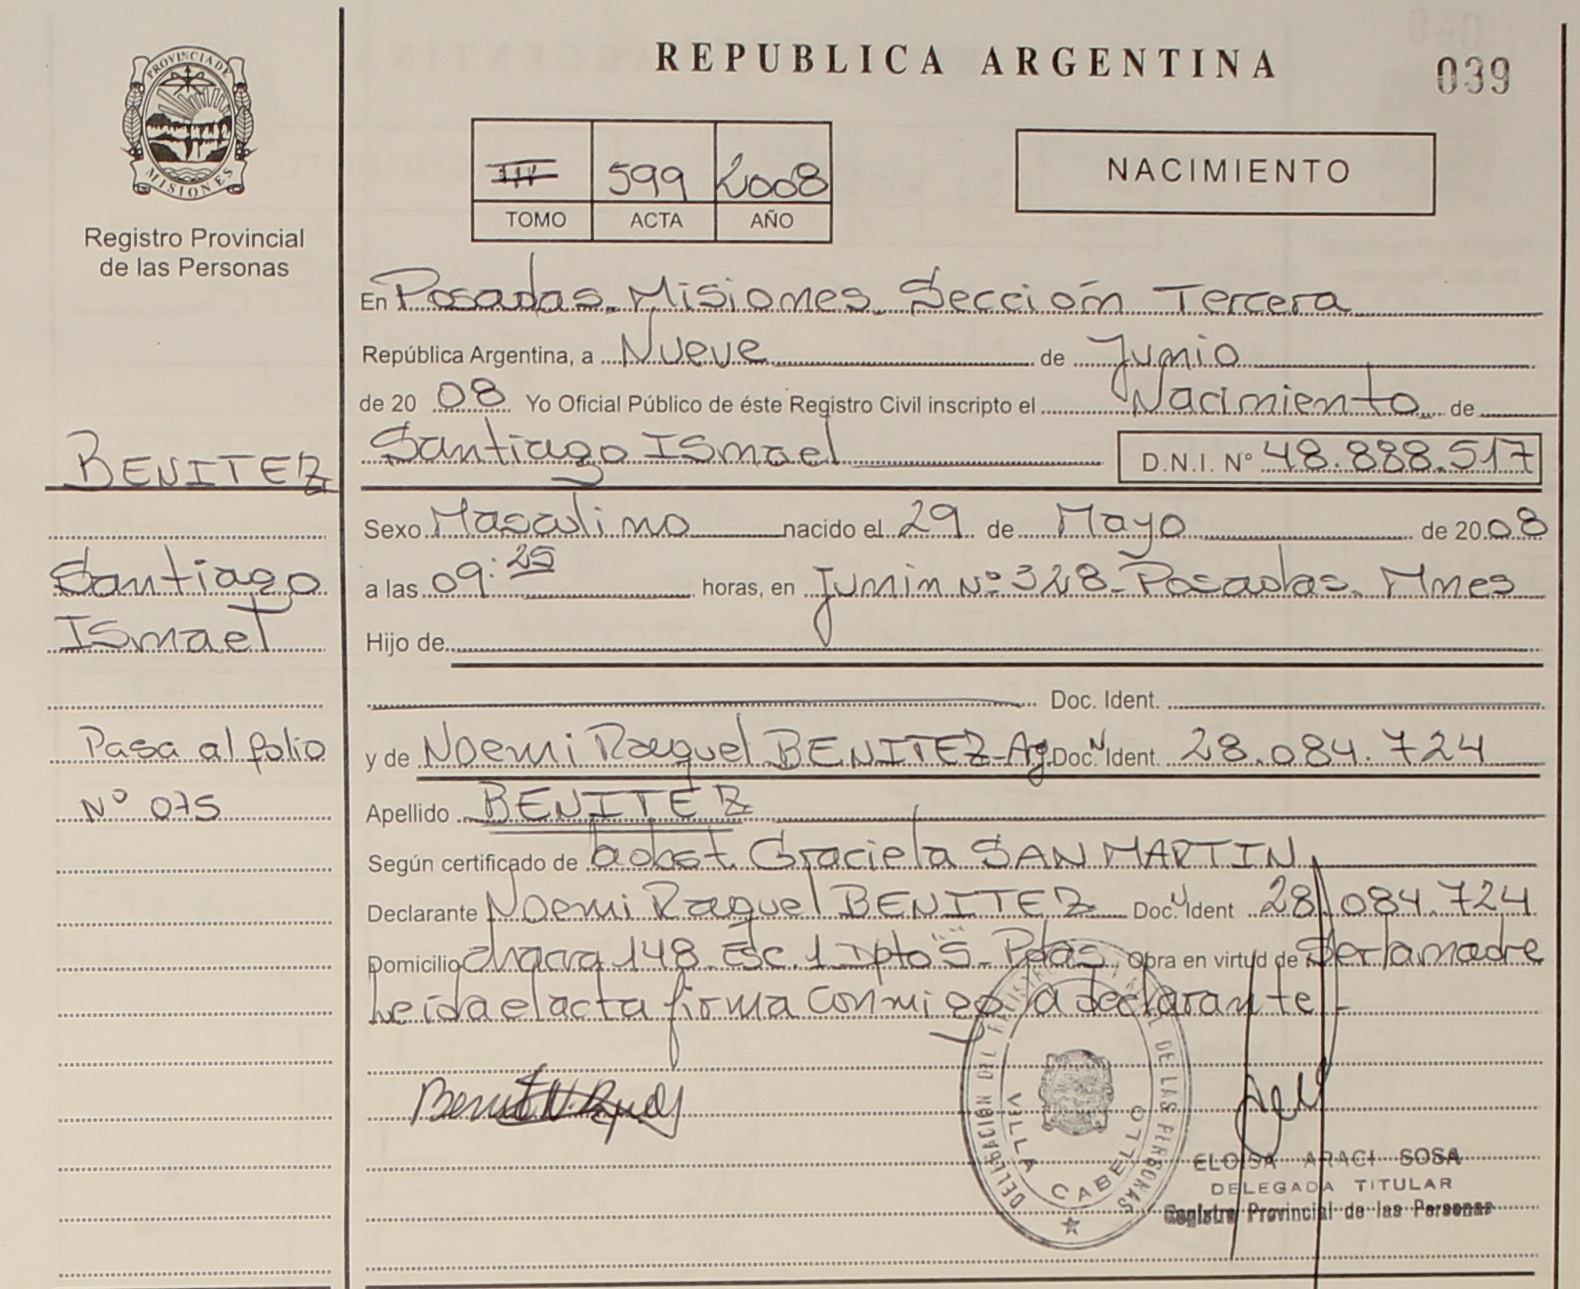 PROVINCIA DE
MISIONES
Registro Provincial
de las Personas
REPUBLICA ARGENTINA
039
III 599 2008
TOMO ACTA AÑO
NACIMIENTO
En Posadas. Misiones. Sección Tercera
República Argentina, a Nueve de Junio
de 20 08 Yo Oficial Público de éste Registro Civil inscripto el Nacimiento de
Santiago Ismael D.N.I. N° 48.888.517
BENITEZ
Santiago
Ismael
Pasa al folio
N° 075
Sexo Masculino nacido el 29 de Mayo de 20 08
a las 09:25 horas, en Junin N° 328- Posadas. Mnes
Hijo de
Doc. Ident.
y de Noemi Raquel BENITEZ-Ag Doc. N Ident. 28.084.724
Apellido BENITEZ
Según certificado de obst. Graciela SAN MARTIN
Declarante Noemi Raquel BENITEZ Doc. Ident 28.084.724
Domicilio chacra 148 Esc. 1 Dpto "5"- Pdas. Obra en virtud de Ser la madre
Leida el acta firma conmigo la declarante.-
DELEGACIÓN DEL REGISTRO PROVINCIAL DE LAS PERSONAS
VILLA CABELLO
ELOISA ARACI SOSA
DELEGADA TITULAR
Registro Provincial de las Personas